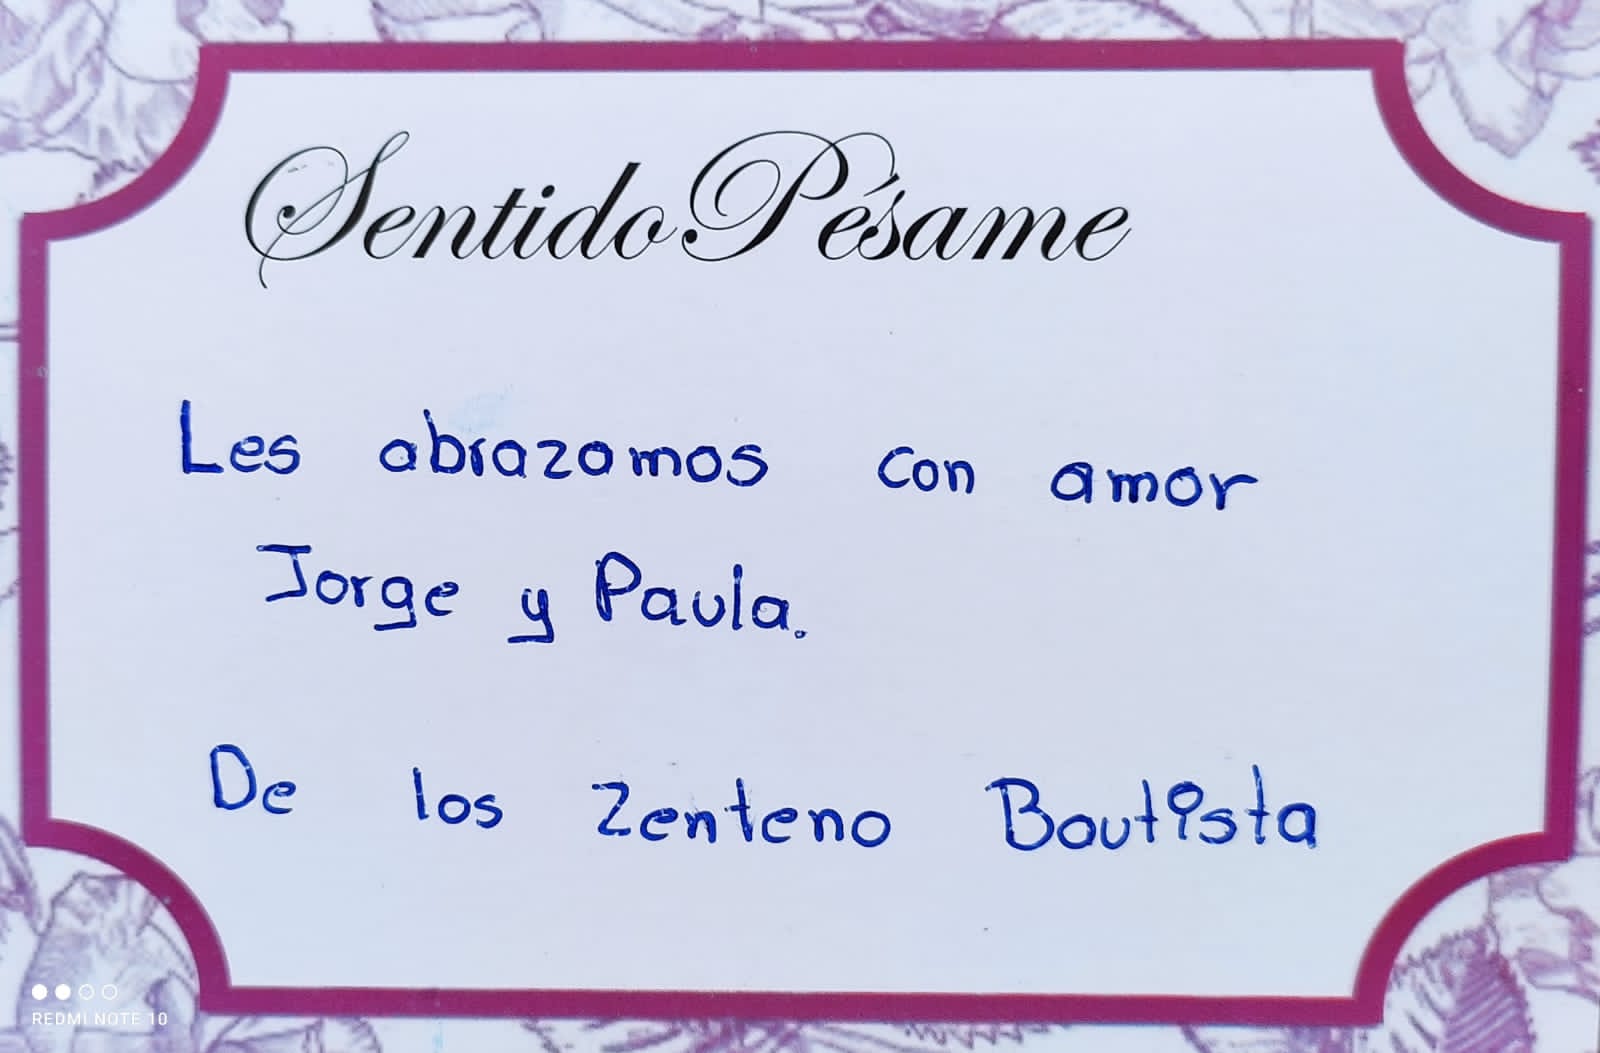 Sentido Pésame
Les abrazamos con amor
Jorge y Paula.
De los Zenteno Bautista
REDMI NOTE 10